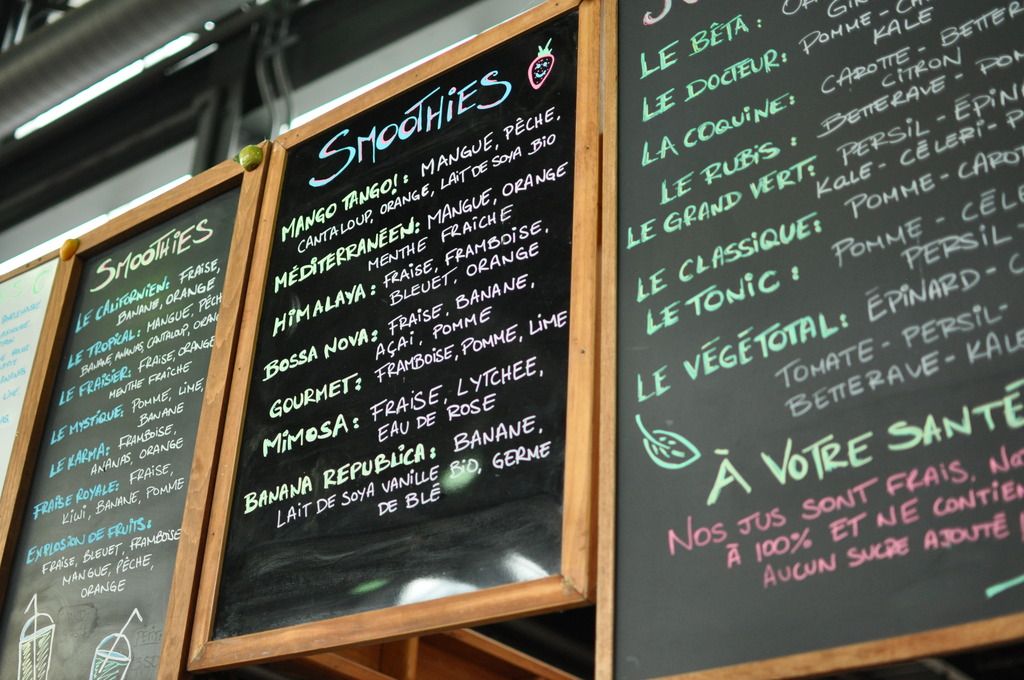 SMOOTHIES
LE CALIFORNIEN: FRAISE,
BANANE, ORANGE
LE TROPICAL: MANGUE, PÊCH
BANANE, ANANAS, CANTALOUP, ORAN
LE FRAISIER: FRAISE, ORANGE
MENTHE FRAÎCHE
LE MYSTIQUE: POMME, LIME
BANANE
LE KARMA: FRAMBOISE,
ANANAS, ORANGE
FRAISE ROYALE: FRAISE,
KIWI, BANANE, POMME
EXPLOSION DE FRUITS:
FRAISE, BLEUET, FRAMBOISE
MANGUE, PÊCHE,
ORANGE
SMOOTHIES
MANGO TANGO!: MANGUE, PÊCHE,
CANTALOUP, ORANGE, LAIT DE SOYA BIO
MÉDITERRANÉEN: MANGUE, ORANGE
MENTHE FRAÎCHE
HIMALAYA: FRAISE, FRAMBOISE,
BLEUET, ORANGE
BOSSA NOVA: FRAISE, BANANE,
AÇAI, POMME
GOURMET: FRAMBOISE, POMME, LIME
MIMOSA: FRAISE, LYTCHEE,
EAU DE ROSE
BANANA REPUBLICA: BANANE,
LAIT DE SOYA VANILLE BIO, GERME
DE BLÉ
LE BÊTA:
LE DOCTEUR: POMME - CA
KALE
LA COQUINE: CAROTTE - BETTER
CITRON
LE RUBIS: BETTERAVE - POM
LE GRAND VERT: PERSIL - ÉPIN
KALE - CÉLERI - P
LE CLASSIQUE: POMME - CAROT
LE TONIC: POMME - CÉLE
PERSIL -
LE VÉGÉTOTAL: ÉPINARD - C
TOMATE - PERSIL -
BETTERAVE - KALE
À VOTRE SANTÉ
NOS JUS SONT FRAIS, NO
À 100% ET NE CONTIEN
AUCUN SUCRE AJOUTÉ !